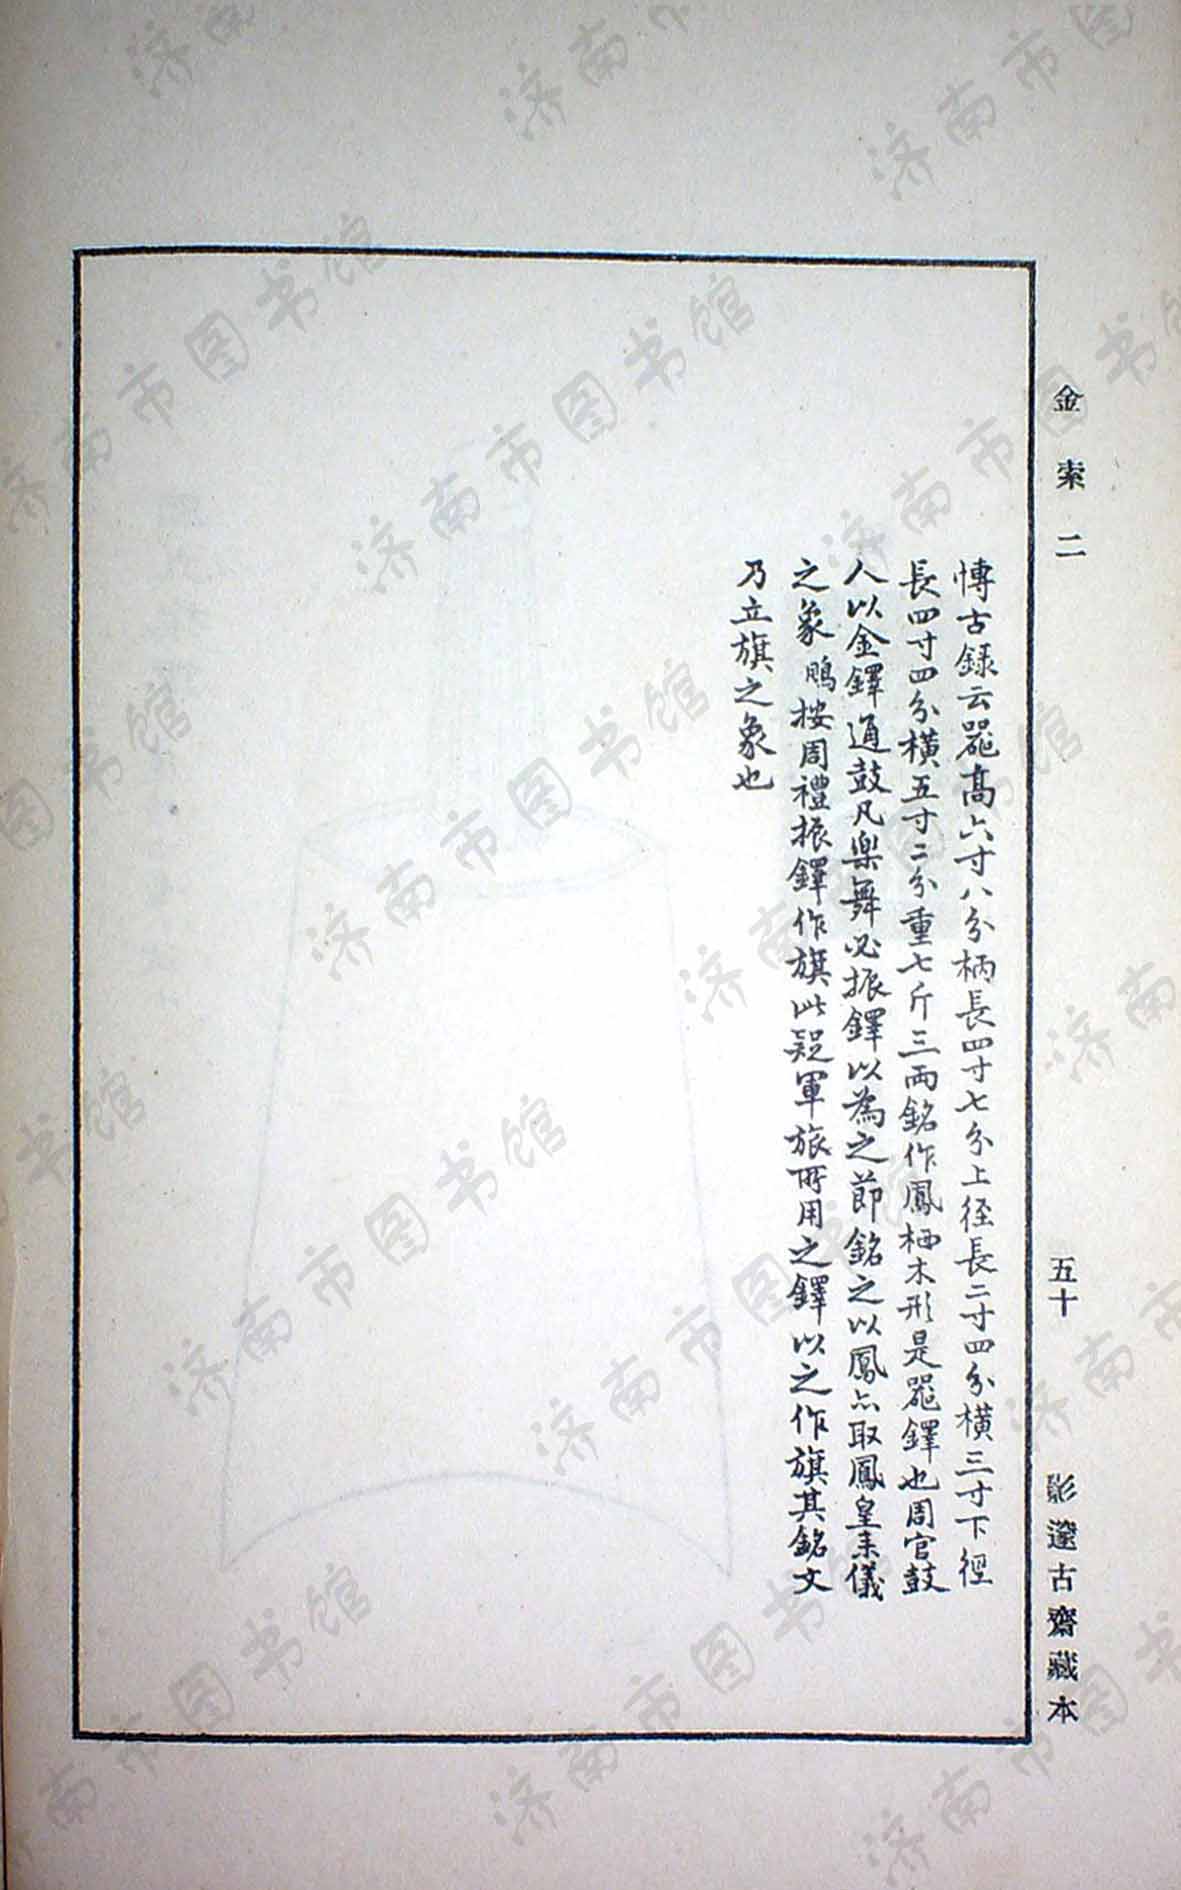 金索二
五十
影邃古齋藏本
博古録云器高六寸八分柄長四寸七分上徑長二寸四分横三寸下徑
長四寸四分横五寸二分重七斤三兩銘作鳳栖木形是器鐸也周官鼓
人以金鐸通鼓凡樂舞必振鐸以為之節銘之以鳳亦取鳳皇来儀
之象鵬按周禮振鐸作旗此疑軍旅所用之鐸以之作旗其銘文
乃立旗之象也
济南市图书馆